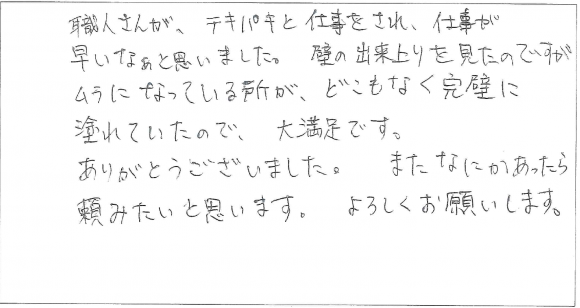 職人さんが、テキパキと仕事をされ、仕事が
早いなぁと思いました。壁の出来上りを見たのですが
ムラになっている所が、どこもなく完璧に
塗れていたので、大満足です。
ありがとうございました。またなにかあったら
頼みたいと思います。よろしくお願いします。